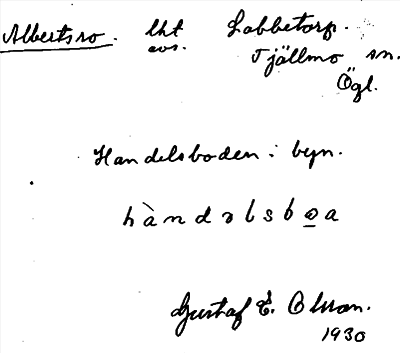 Albertsro. lht Labbetorp.
avs. Tjällmo sn.
Ögl.
Handelsboden i byn.
hàndəlsbo̲a
Gustaf E. Olsson.
1930